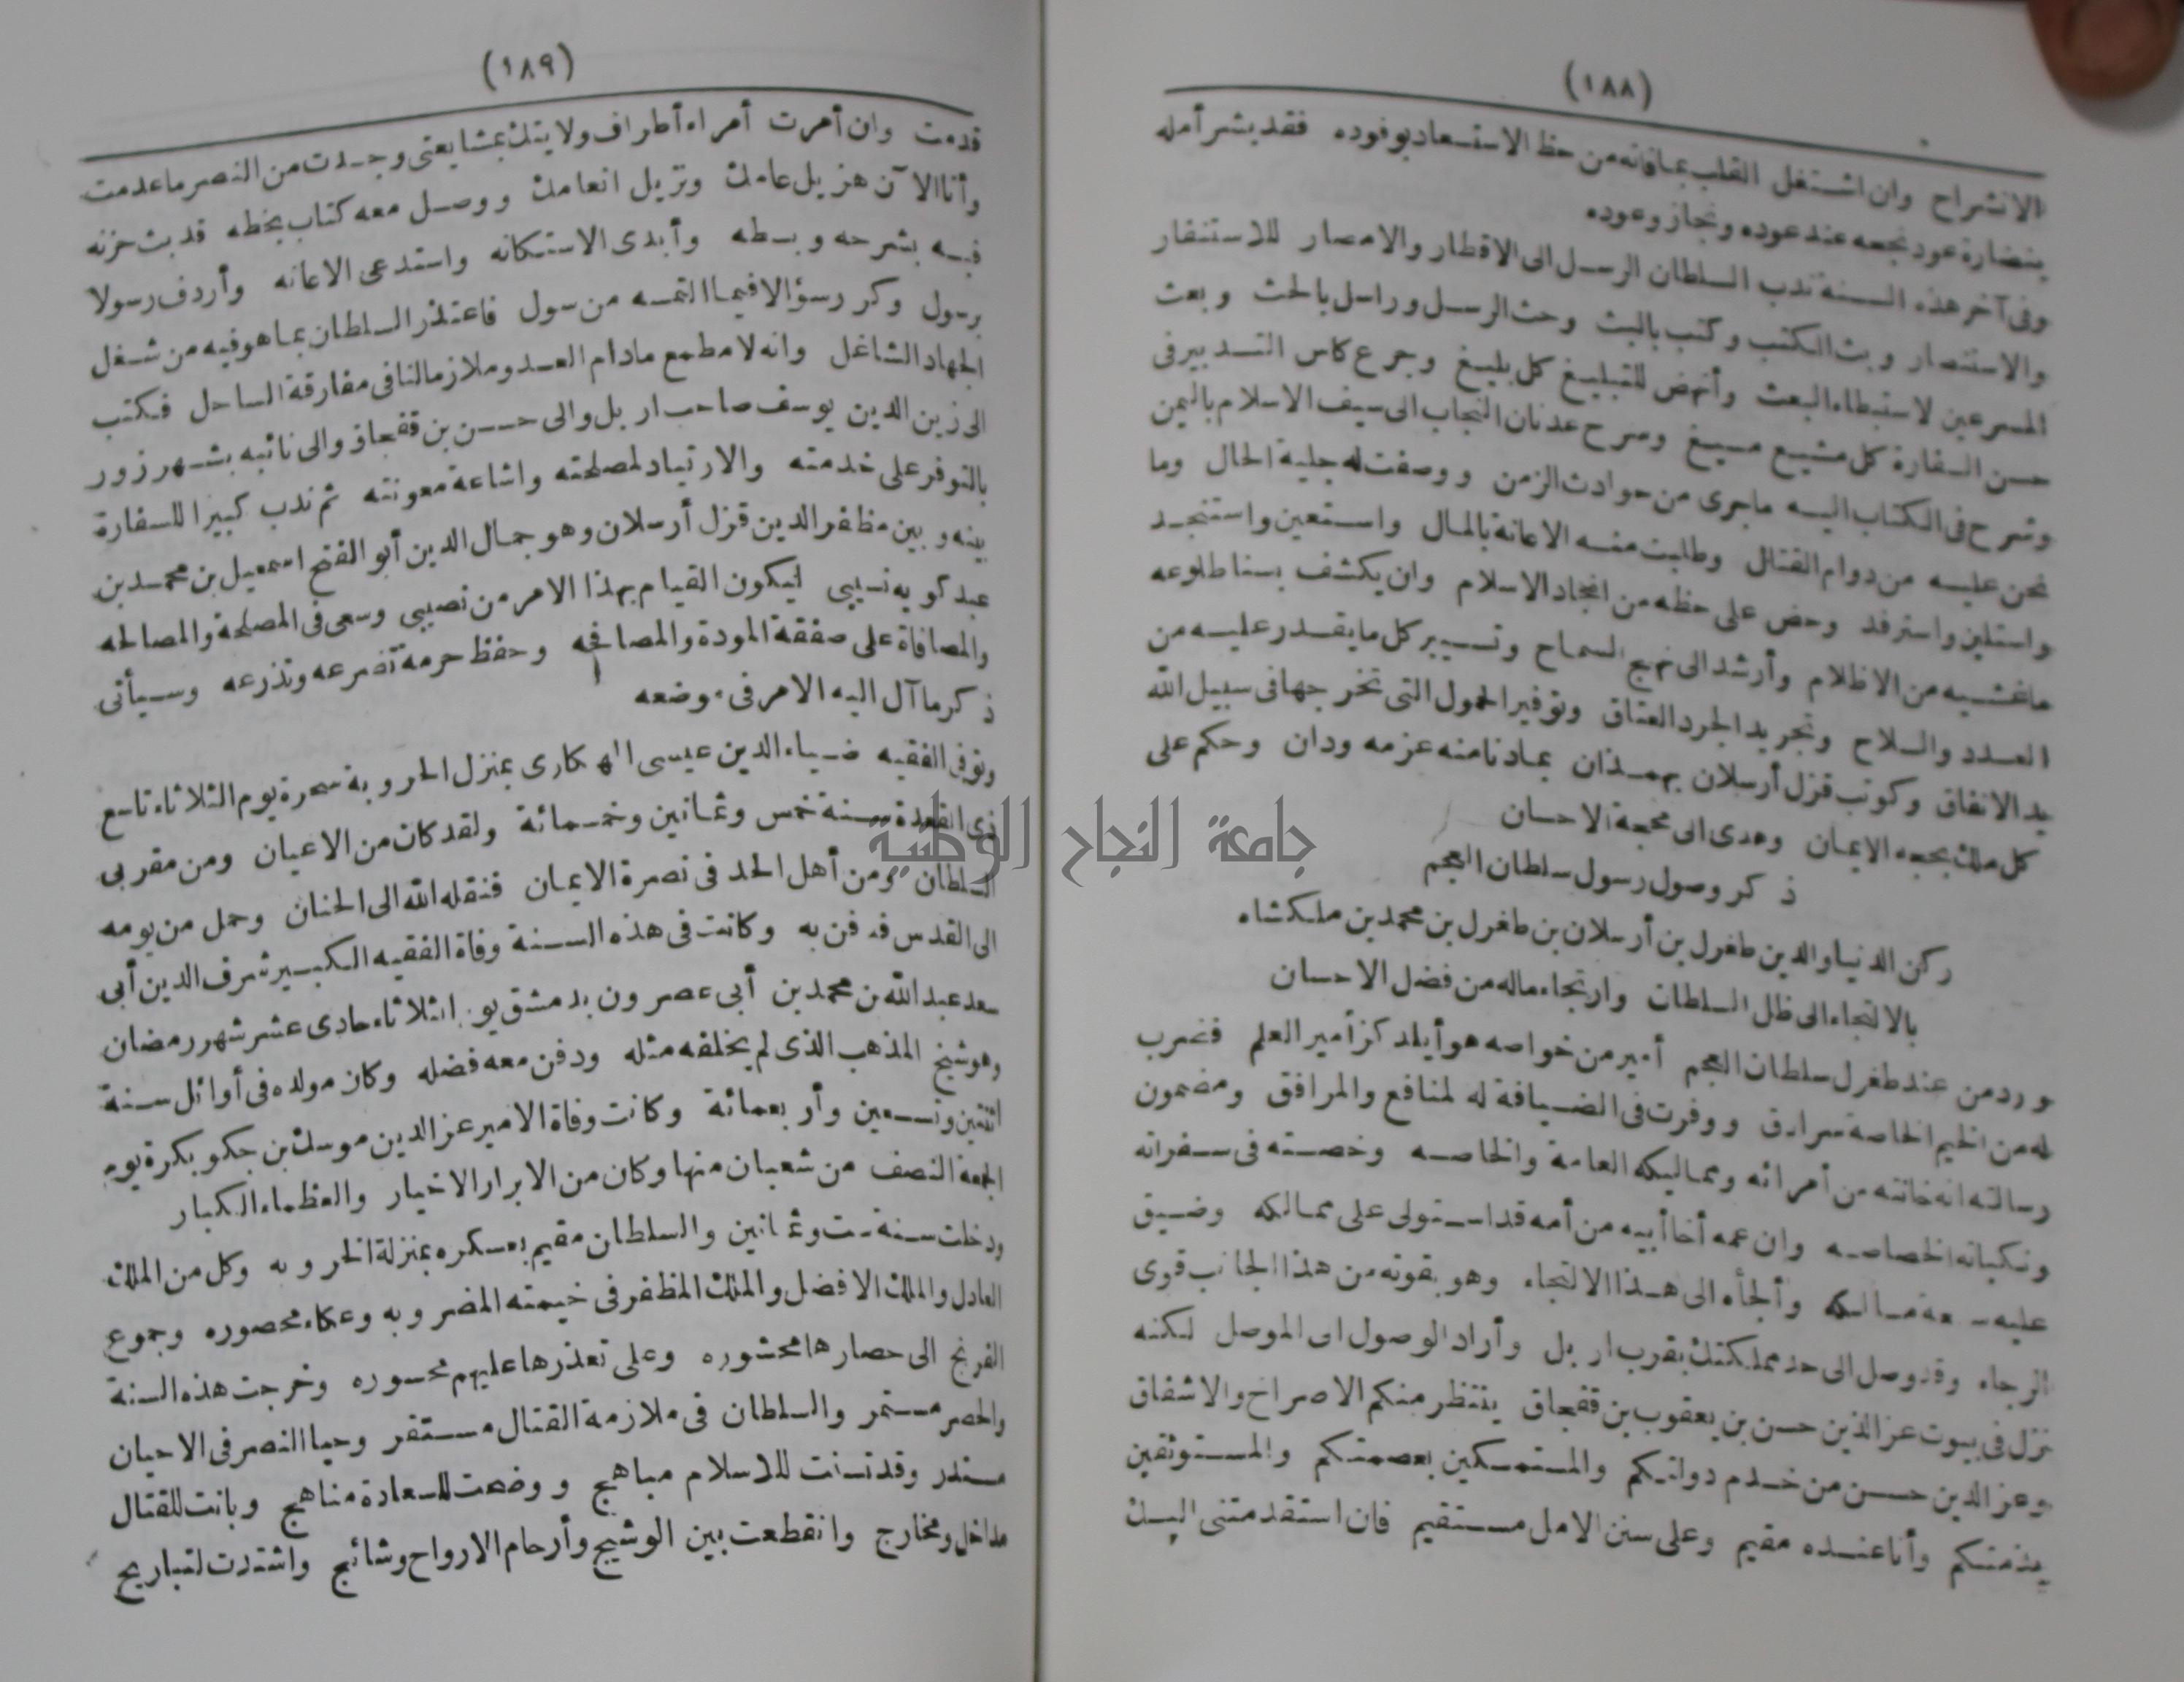 (١٨٨)
الانشراح وان اشتغل القلب بما فاته من حظ الاستسعاد بوفوده فقد بشر أمله
بنضارة عود نجعه عند عوده ونجاز وعوده
وفى آخر هذه السنة ندب السلطان الرسل الى الاقطار والامصار للاستنفار
والاستنصار وبث الكتب وكتب بالبث وحث الرسل وراسل بالحث وبعث
المسرعين لاستبطاء البعث وأنهض للتبليغ كل بليغ وجرع كاس التدبير فى
حسن السفارة كل مشيع مسيغ وسرح عدنان النجاب الى سيف الاسلام باليمن
وشرح فى الكتاب اليه ماجرى من حوادث الزمن ووصفت له جلية الحال وما
نحن عليه من دوام القتال وطلبت منه الاعانة بالمال واستعين واستنجد
واستلين واسترفد وحض على حظه من انجاد الاسلام وان يكشف بسنا طلوعه
ماغشيه من الاظلام وأرشد الى نهج السماح وتسيير كل ما يقدر عليه من
العدد والسلاح وتجريد الجرد العتاق وتوفير الحمول التى تخرجها فى سبيل الله
يد الانفاق وكوتب قزل أرسلان بهمذان بمادنا منه عزمه ودان وحكم على
كل ملك بحجه الايمان وهدى الى محجة الاحسان
ذكر وصول رسول سلطان العجم
ركن الدنيا والدين طغرل بن أرسلان بن طغرل بن محمد بن ملكشاه
بالالتجاء الى ظل السلطان وارتجاء ماله من فضل الاحسان
ورد من عند طغرل سلطان العجم أمير من خواصه هو أيلدكز أمير العلم فضرب
له من الخيم الخاصة سرادق ووفرت فى الضيافة له لمنافع والمرافق ومضمون
رسالته انه خانته من أمرائه ومماليكه العامة والخاصه وخصته فى سفراته
ونكباته الخصاصه وان عمه أخا أبيه من أمه قد استولى على ممالكه وضيق
عليه سعة مسالكه وألجأه الى هذا الالتجاء وهو بقوته من هذا الجانب قوى
الرجاء وقد وصل الى حد مملكتك بقرب اربل وأراد الوصول الى الموصل لكنه
نزل فى بيوت عز الدين حسن بن يعقوب بن قفجاق ينتظر منكم الاصراخ والاشفاق
وعز الدين حسن من خدم دولتكم والمتمسكين بعصمتكم والمستوثقين
بذمتكم وأنا عنده مقيم وعلى سنن الامل مستقيم فان استقدمتنى اليك
(١٨٩)
قدمت وان أمرت أمراء أطراف ولايتك بمشايعتى وجدت من النصر ما عدمت
وأنا الآن هزيل عامك ونزيل انعامك ووصل معه كتاب بخطه قد بث حزنه
فيه بشرحه وبسطه وأبدى الاستكانه واستدعى الاعانه وأردف رسولا
برسول وكرر سؤالا فيما التمسه من سول فاعتذر السلطان بما هو فيه من شغل
الجهاد الشاغل وانه لا مطمع مادام العدو ملازما لنا فى مفارقة الساحل فكتب
الى زين الدين يوسف صاحب اربل والى حسن بن قفجاق والى نائبه بشهرزور
بالتوفر على خدمته والارتياد لمصلحته واشاعة معونته ثم ندب كبيرا للسفارة
بينه وبين مظفر الدين قزل أرسلان وهو جمال الدين أبو الفتح اسمعيل بن محمد بن
عبد كويه نسيبى ليكون القيام بهذا الامر من نصيبى وسعى فى المصلحة والمصالحه
والمصافاة على صفقة المودة والمصافحه وحفظ حرمة تضرعه وتذرعه وسيأتى
ذكر ما آل اليه الامر فى موضعه
وتوفى الفقيه ضياء الدين عيسى الهكارى بمنزل الخروبة سحرة يوم الثلاثاء تاسع
ذى القعدة سنة خمس وثمانين وخمسمائة ولقد كان من الاعيان ومن مقربى
السلطان ومن أهل الجد فى نصرة الايمان فنقله الله الى الجنان وحمل من يومه
الى القدس فدفن به وكانت فى هذه السنة وفاة الفقيه الكبير شرف الدين أبى
سعد عبد الله بن محمد بن أبى عصرون بدمشق يوم الثلاثاء حادى عشر شهر رمضان
وهو شيخ المذهب الذى لم يخلفه مثله ودفن معه فضله وكان مولده فى أوائل سنة
اثنتين وتسعين وأربعمائة وكانت وفاة الامير عز الدين موسك بن جكو بكرة يوم
الجمعة النصف من شعبان منها وكان من الابرار الاخيار والعظماء الكبار
ودخلت سنة ست وثمانين والسلطان مقيم بعسكره بمنزلة الخروبه وكل من الملك
العادل والملك الافضل والملك المظفر فى خيمته المضروبه وعكاء محصوره وجموع
الفرنج الى حصارها محشوره وعلى تعذرها عليهم محسوره وخرجت هذه السنة
والحصر مستمر والسلطان فى ملازمة القتال مستقر وحيا النصر فى الاحيان
مستدر وقد تسنت للاسلام مباهج ووضحت للسعادة مناهج وبانت للقتال
مداخل ومخارج وانقطعت بين الوشيج وأرحام الارواح وشائج واشتدت لتباريح
جامعة النجاح الوطنية